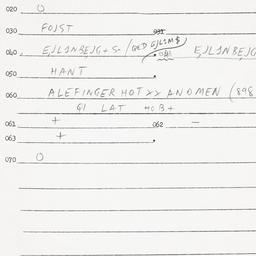 020 O
030 FOJST 031
040 EJLINBEJG + S- / 041 EJLINBEJG
050 HANT
060 ALEFINGER HOT XX AN OMEN (898
GI LAT HOB +
061 + 062 -
063 +
070 O